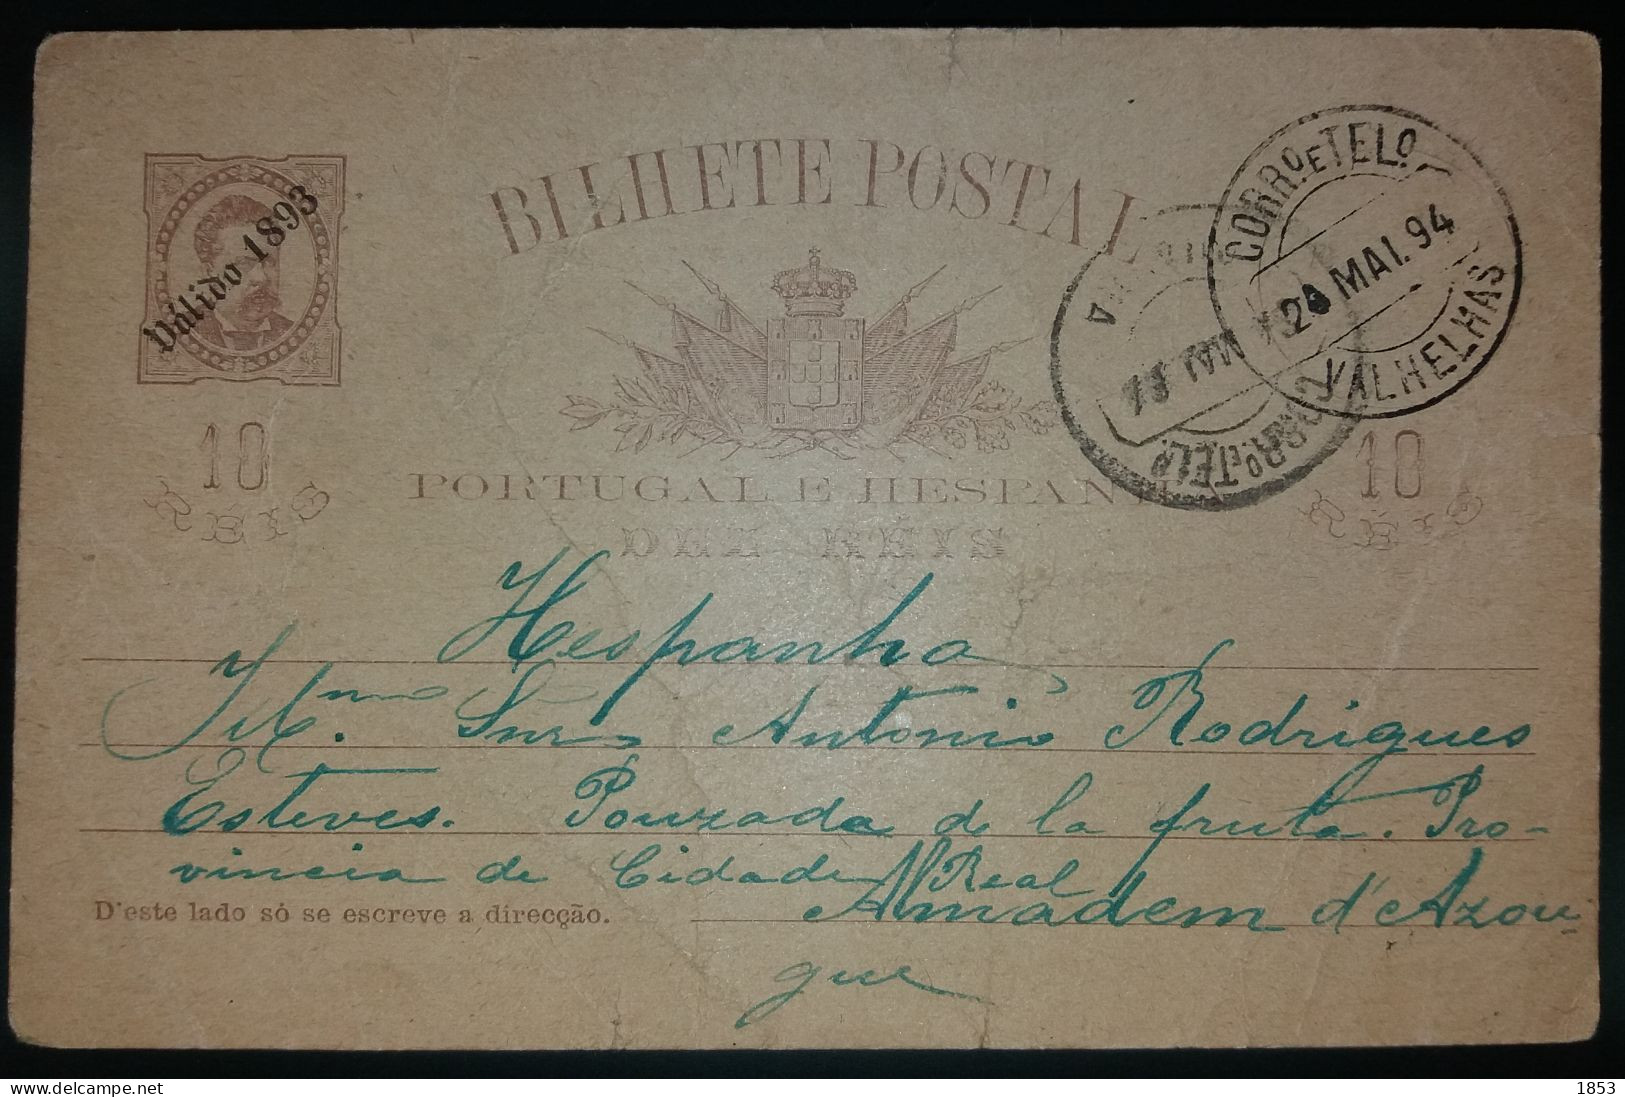 BILHETE POSTAL
Válido 1893
CORRº E TELº
20 MAI. 94
VALHELHAS
MAI
CORRº E TELº
10
RÉIS
10
RÉIS
PORTUGAL E HESPAN
DEZ RÉIS
Hespanha
Illmº. Snr Antonio Rodrigues
Esteves. Pouzada de la fruta. Pro-
vincia de Cidade Real
Almadem d'Azou-
gue
D'este lado só se escreve a direcção.
delcampe.net
1853